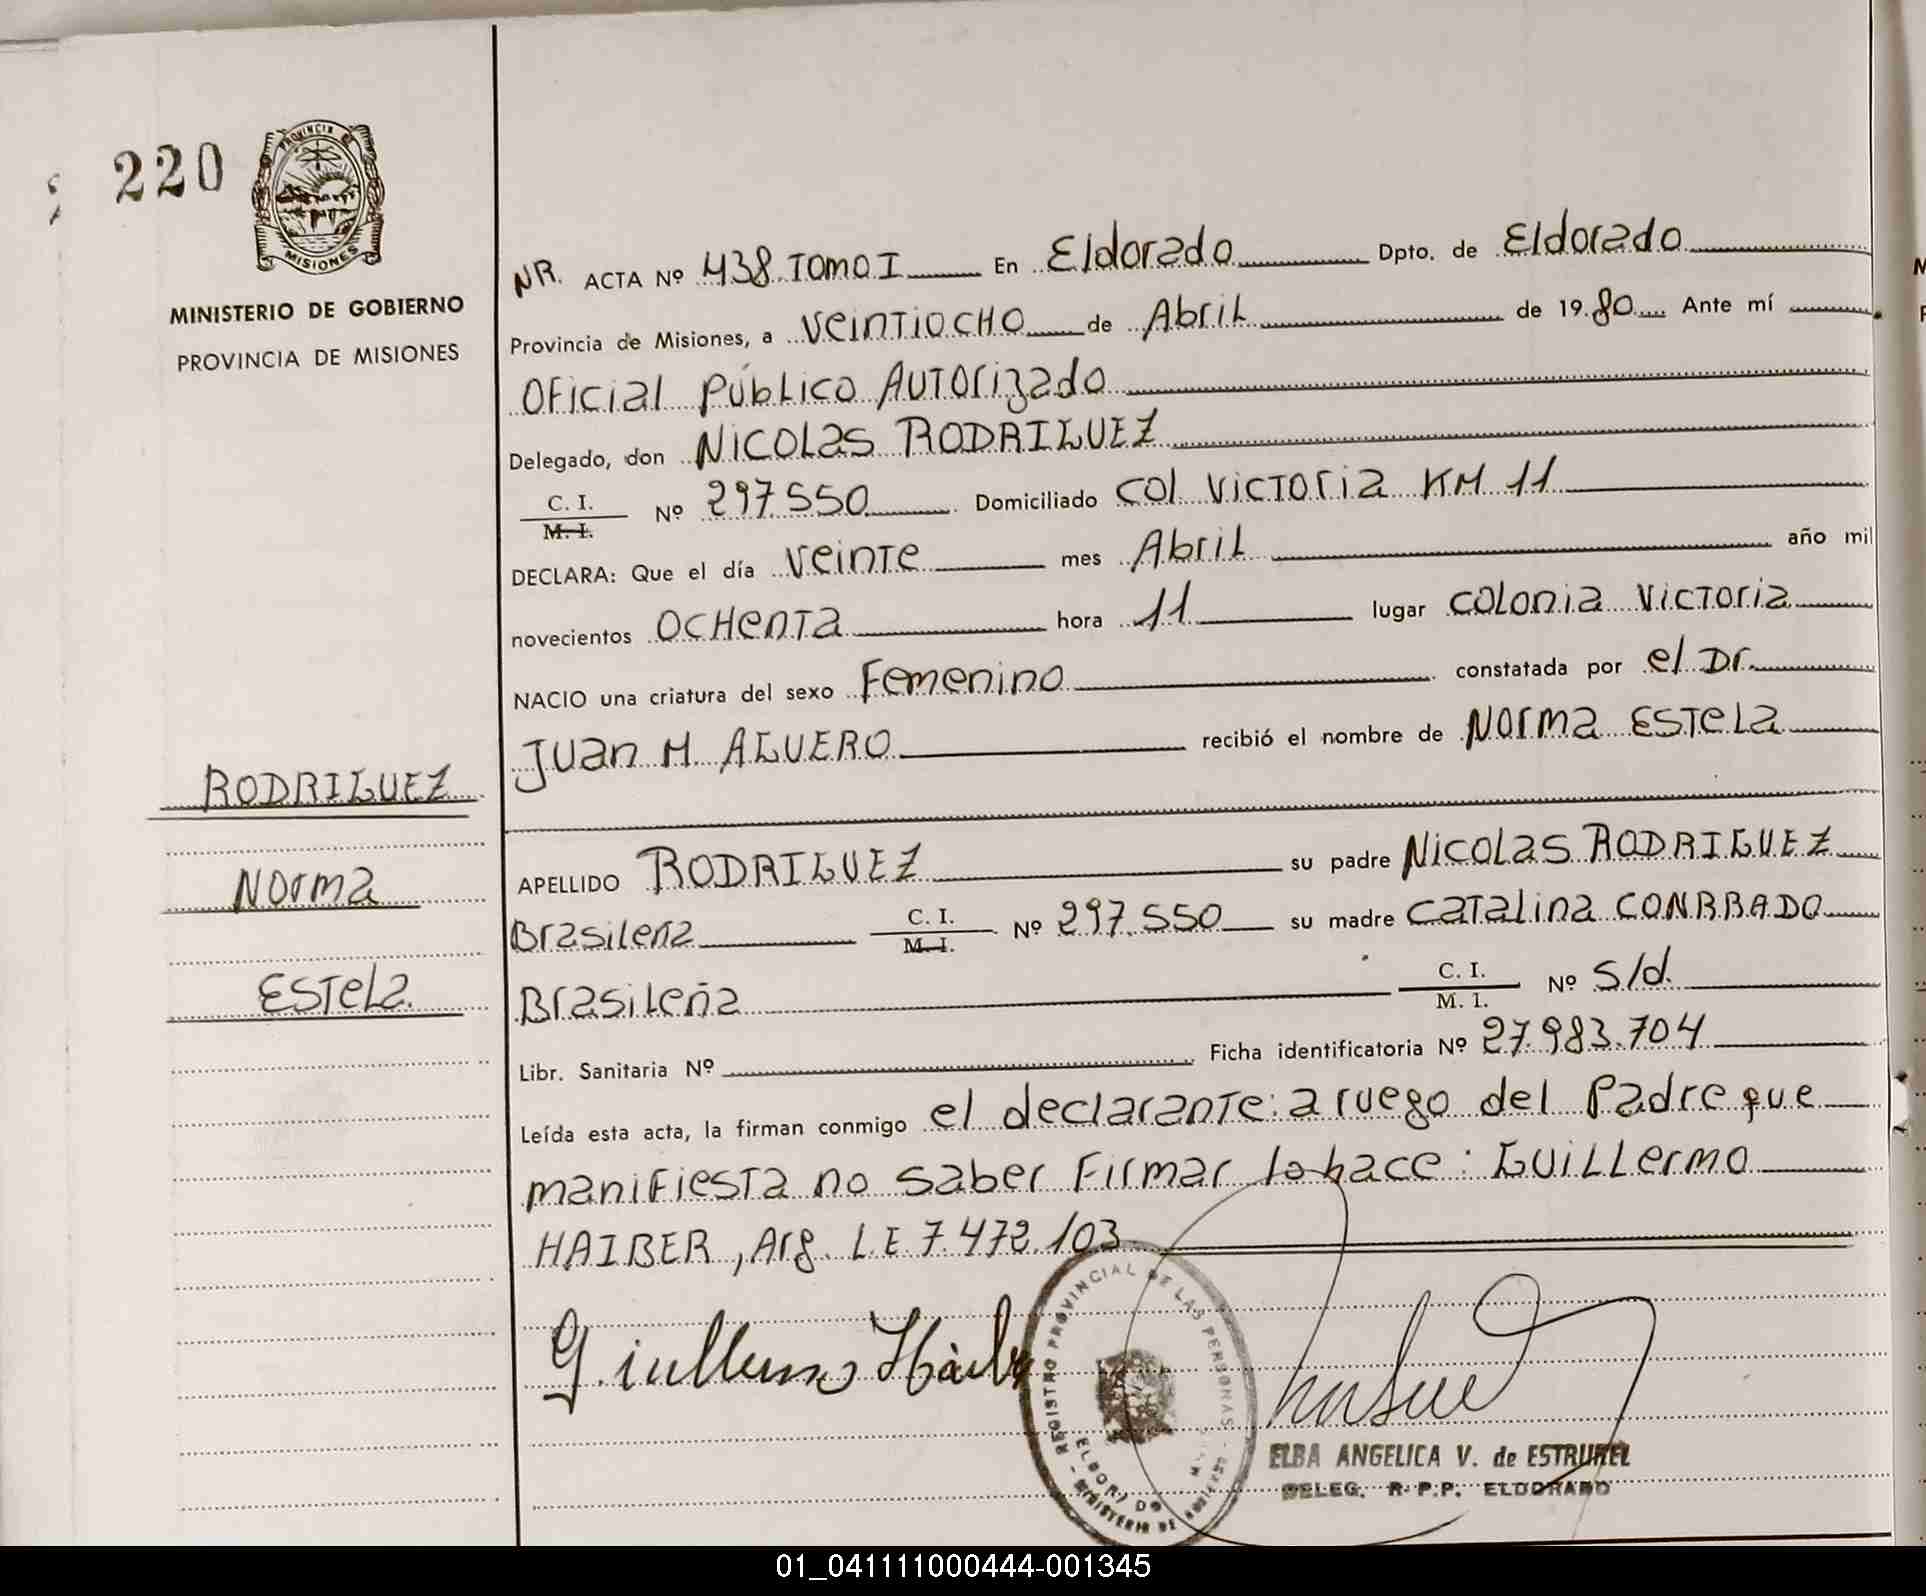 220
PROVINCIA DE
MISIONES
MINISTERIO DE GOBIERNO
PROVINCIA DE MISIONES
RODRIGUEZ
Norma
Estela
NR. ACTA Nº 438 Tomo I En Eldorado Dpto. de Eldorado
Provincia de Misiones, a veintiocho de Abril de 1980 Ante mí
Oficial Público Autorizado
Delegado, don Nicolas RODRIGUEZ
C. I.
M. I. Nº 297.550 Domiciliado Col Victoria KM 11
DECLARA: Que el día veinte mes Abril año mil
novecientos ochenta hora 11 lugar Colonia Victoria
NACIO una criatura del sexo Femenino constatada por el Dr.
Juan M. AGUERO recibió el nombre de Norma Estela
APELLIDO RODRIGUEZ su padre Nicolas RODRIGUEZ
Brasileña C. I.
M. I. Nº 297.550 su madre Catalina CONRRADO
Brasileña C. I.
M. I. Nº s/d.
Libr. Sanitaria Nº Ficha identificatoria Nº 27.983.704
Leída esta acta, la firman conmigo el declarante: a ruego del Padre que
manifiesta no saber Firmar lo hace: Guillermo
HAIBER, Arg. L E 7.472.103
Guillermo Haiber
REGISTRO PROVINCIAL DE LAS PERSONAS
MINISTERIO DE
ELBA ANGELICA V. de ESTRUKEL
DELEG. R. P. P. ELDORADO
01_041111000444-001345